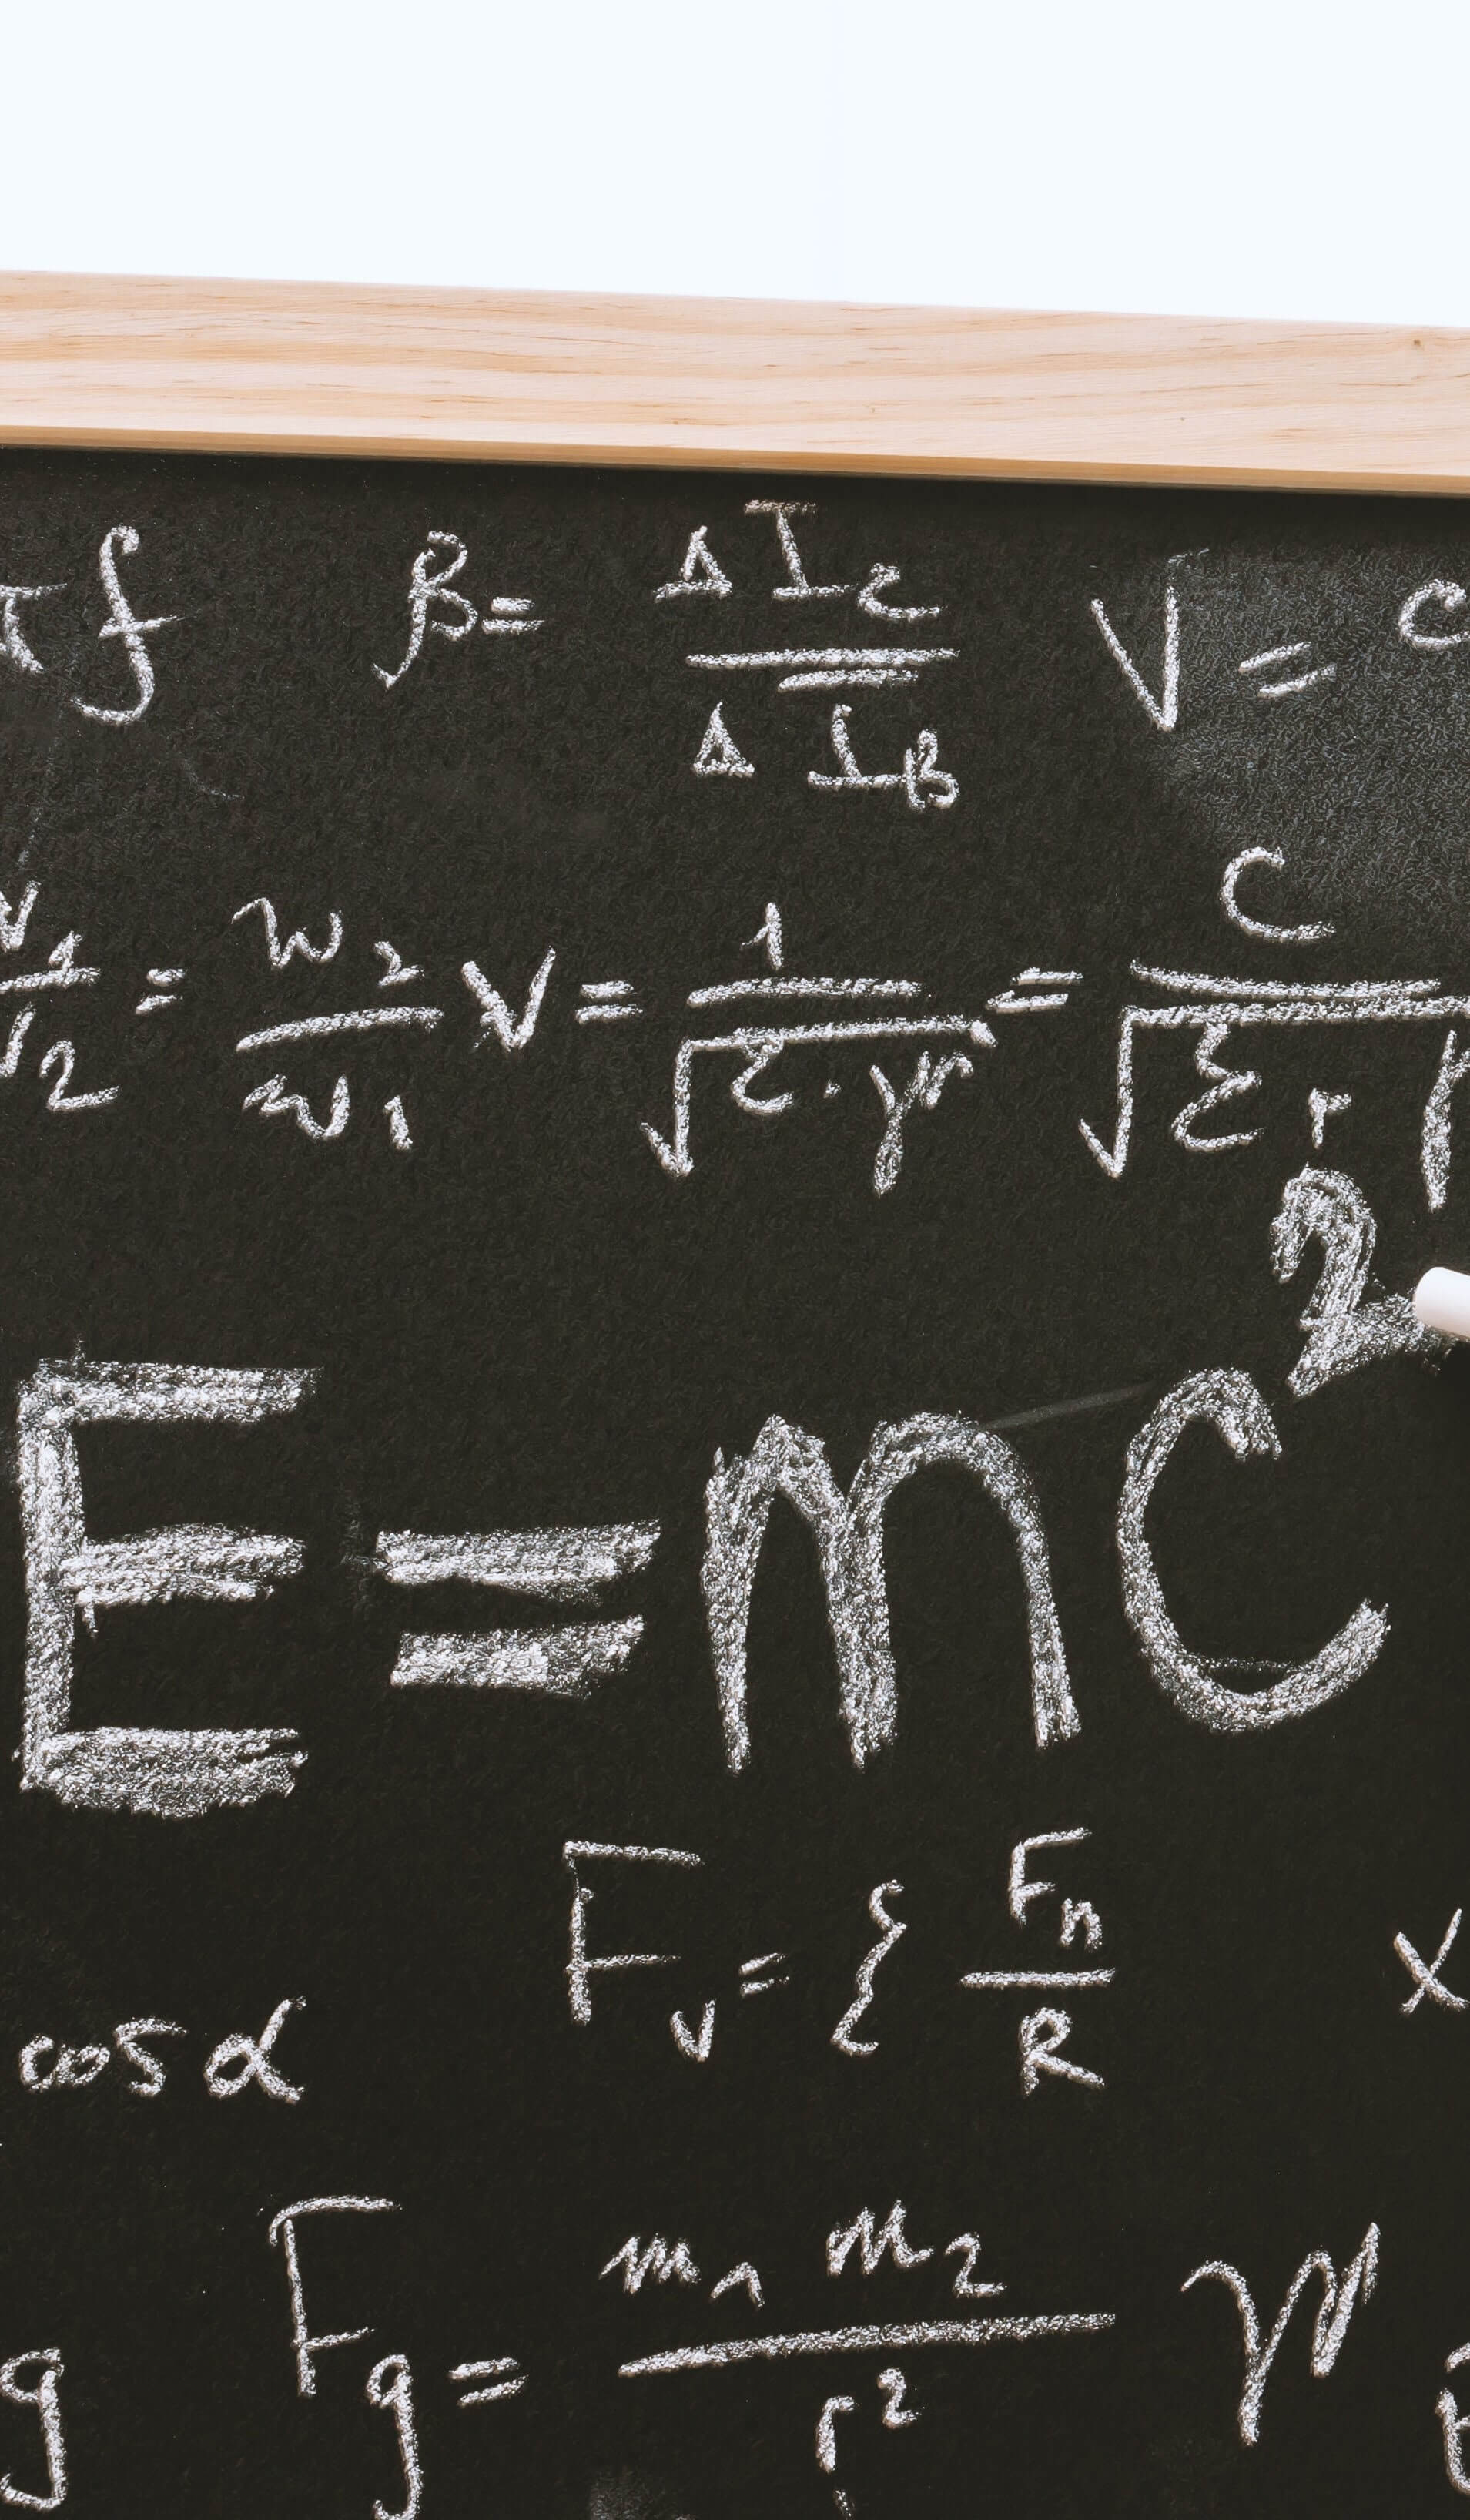 f β = ΔIc / ΔIB V = c
1 / 2 = w2 / w1 V = 1 / √(ε · μ) = c / √(εr
E = mc²
Fv = ξ Fn / R x
cos α
Fg = m1 m2 / r²
g